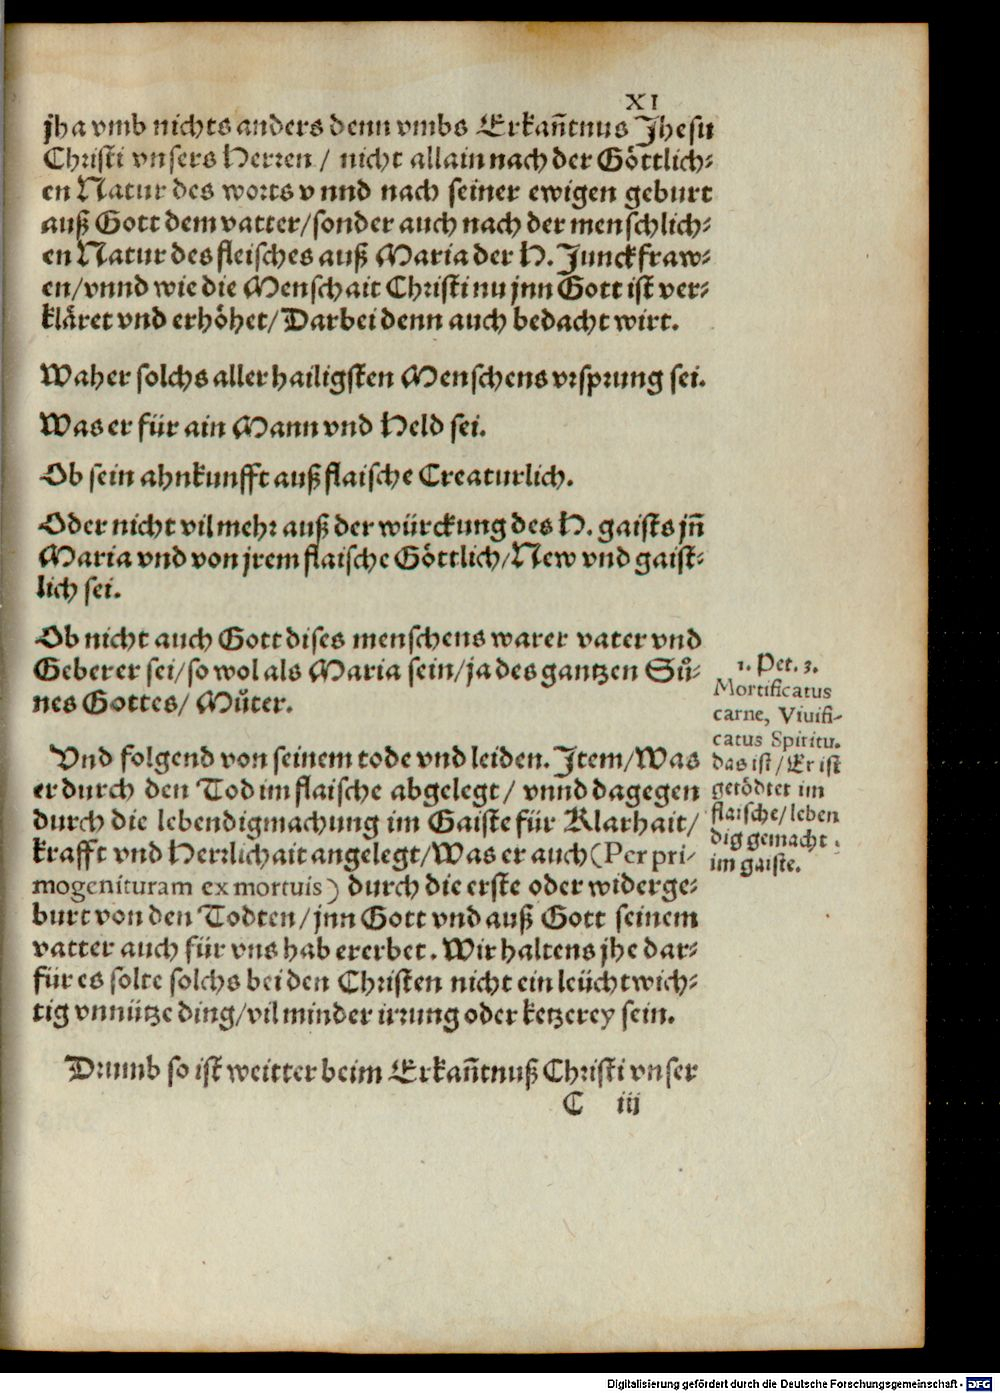 XI
jha vmb nichts anders denn vmbs Erkañtnus Jhesu
Christi vnsers Herren / nicht allain nach der Göttlich⸗
en Natur des worts vnnd nach seiner ewigen geburt
auß Gott dem vatter/sonder auch nach der menschlich⸗
en Natur des fleisches auß Maria der H. Junckfraw⸗
en/vnnd wie die Menschait Christi nu jnn Gott ist ver⸗
kläret vnd erhöhet/Darbei denn auch bedacht wirt.
Waher solchs aller hailigsten Menschens vrsprung sei.
Was er für ain Mann vnd Held sei.
Ob sein ahnkunfft auß flaische Creaturlich.
Oder nicht vil mehr auß der würckung des H. gaists jñ
Maria vnd von jrem flaische Göttlich/New vnd gaist⸗
lich sei.
Ob nicht auch Gott dises menschens warer vater vnd
Geberer sei/so wol als Maria sein/ja des gantzen Sů⸗
nes Gottes/ Můter.
Vnd folgend von seinem tode vnd leiden. Item/Was
er durch den Tod im flaische abgelegt/ vnnd dagegen
durch die lebendigmachung im Gaiste für Klarhait/
krafft vnd Herrlichait angelegt/Was er auch (Per pri-
mogenituram ex mortuis) durch die erste oder widerge⸗
burt von den Todten/jnn Gott vnd auß Gott seinem
vatter auch für vns hab ererbet. Wir haltens jhe dar⸗
für es solte solchs bei den Christen nicht ein leücht wich⸗
tig vnnütze ding/vil minder irrung oder ketzerey sein.
Drumb so ist weitter beim Erkañtnuß Christi vnser
C iij
1. Pet. 3.
Mortificatus
carne, Viuifi-
catus Spiritu.
das ist/Er ist
getödtet im
flaische/leben
dig gemacht
im gaiste.
Digitalisierung gefördert durch die Deutsche Forschungsgemeinschaft - DFG